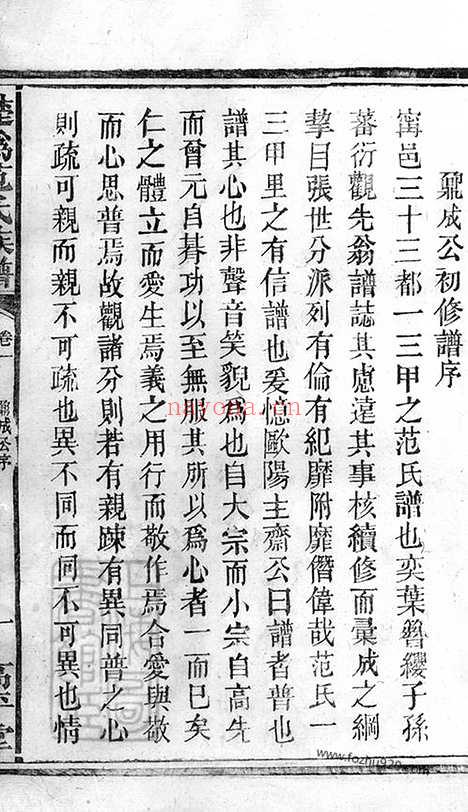 鼐成公初修譜序
甯邑三十三都一三甲之范氏譜也奕葉簪纓子孫
蕃衍觀先翁譜誌其慮遠其事核續修而彙成之綱
挈目張世分派列有倫有紀靡附靡僭偉哉范氏一
三甲里之有信譜也爰憶歐陽主齋公曰譜者普也
譜其心也非聲音笑貌為也自大宗而小宗自高先
而曾元自朞功以至無服其所以為心者一而已矣
仁之體立而愛生焉義之用行而敬作焉合愛與敬
而心思普焉故觀諸分則若有親踈有異同普之心
則疏可親而親不可疏也異不同而同不可異也情
楚為范氏族譜
卷一
鼐成公序
一
高平堂
nayona.hk
www.fozhu920.com